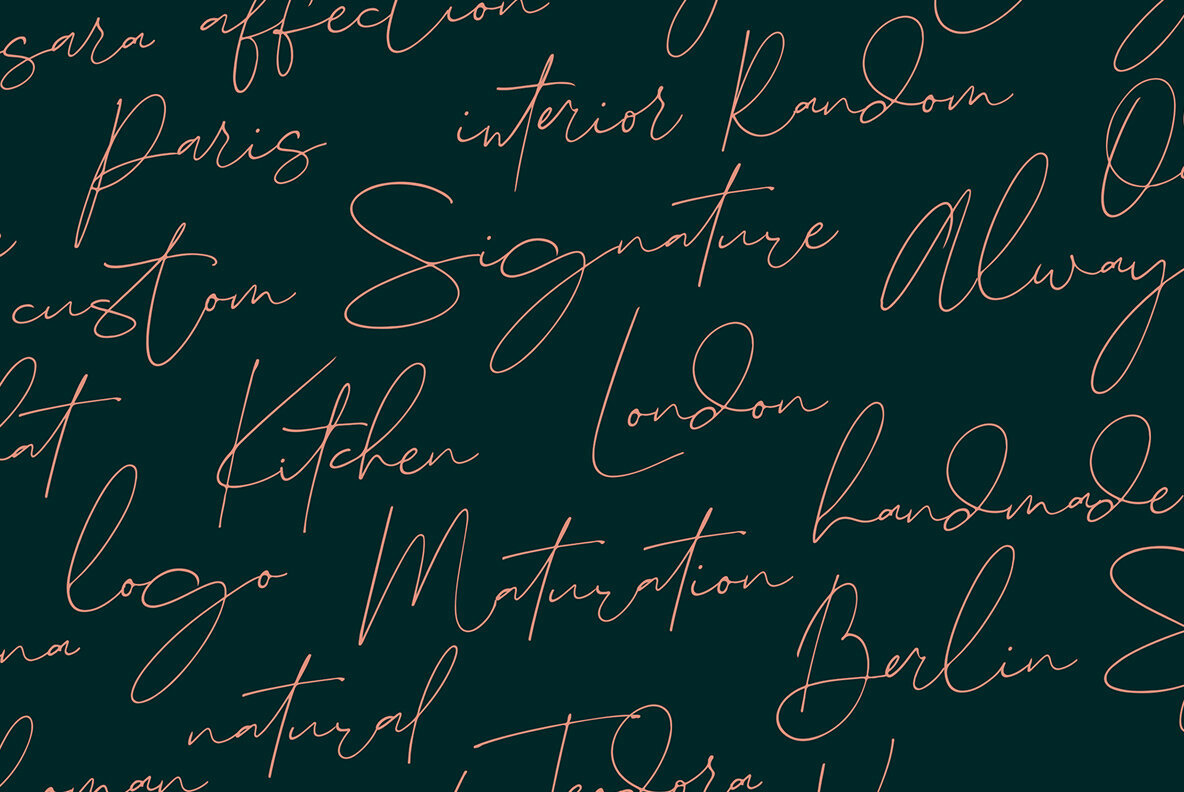 sara affection
Paris interior Random
custom Signature Alway
Kitchen London
logo Maturation handmade
na natural Berlin
Teodora